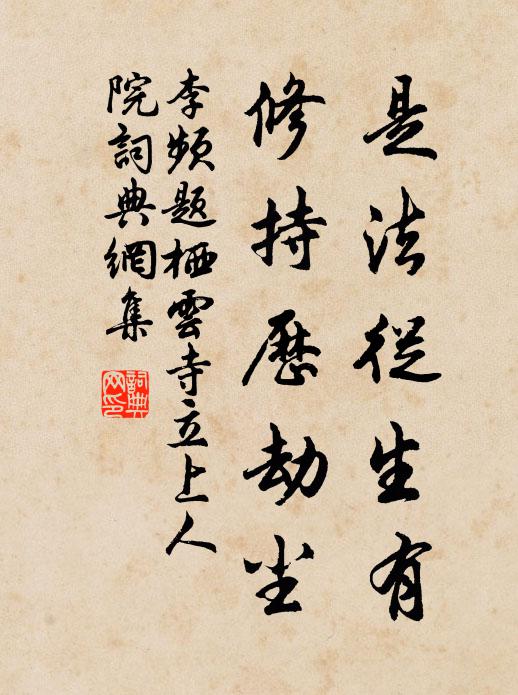 是法從生有
修持歷劫尘
李频題栖雲寺立上人
院詞典網集
詞典
网印